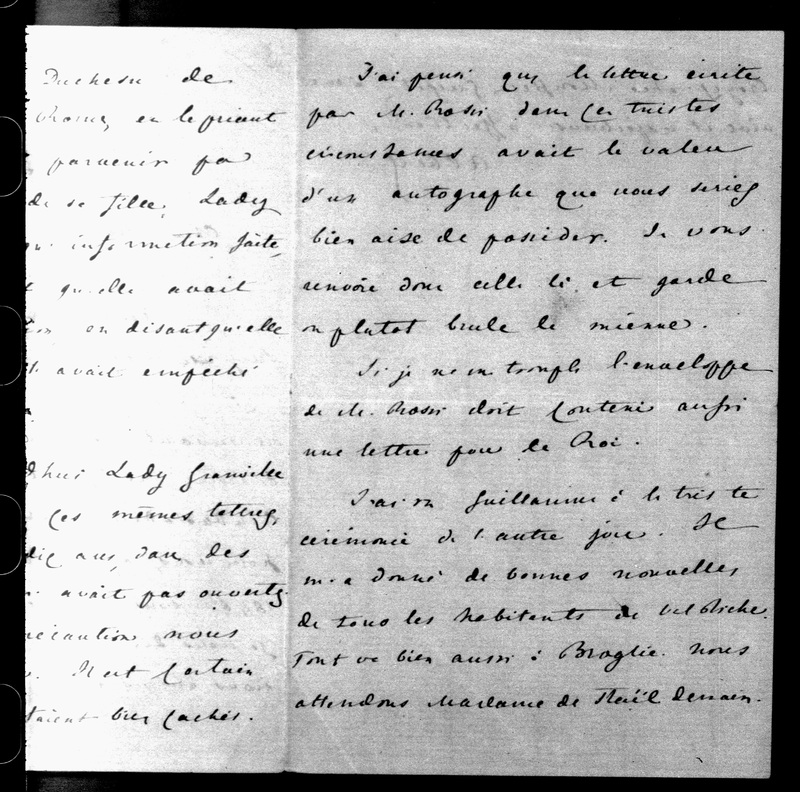 Duchesse de
Rome, en le priant
parvenir par
de sa fille, Lady
information faite,
qu'elle avait
en disant qu'elle
avait empêché
Lady Granville
ces mêmes lettres,
dix ans, dans des
avait pas ouverts.
précaution nous
Il est certain
étaient bien cachés.
J'ai pensé que la lettre écrite
par M. Rossi dans ces tristes
circonstances avait la valeur
d'un autographe que vous seriez
bien aise de posséder. Je vous
renvoie donc celle là et garde
ou plutot brule la mienne.
Si je ne me trompe l'enveloppe
de M. Rossi doit contenir aussi
une lettre pour le Roi.
J'ai vu Guillaume à la triste
cérémonie de l'autre jour. Il
m'a donné de bonnes nouvelles
de tous les habitants de Val Richer.
Tout va bien aussi à Broglie. Nous
attendons Madame de Staël demain.